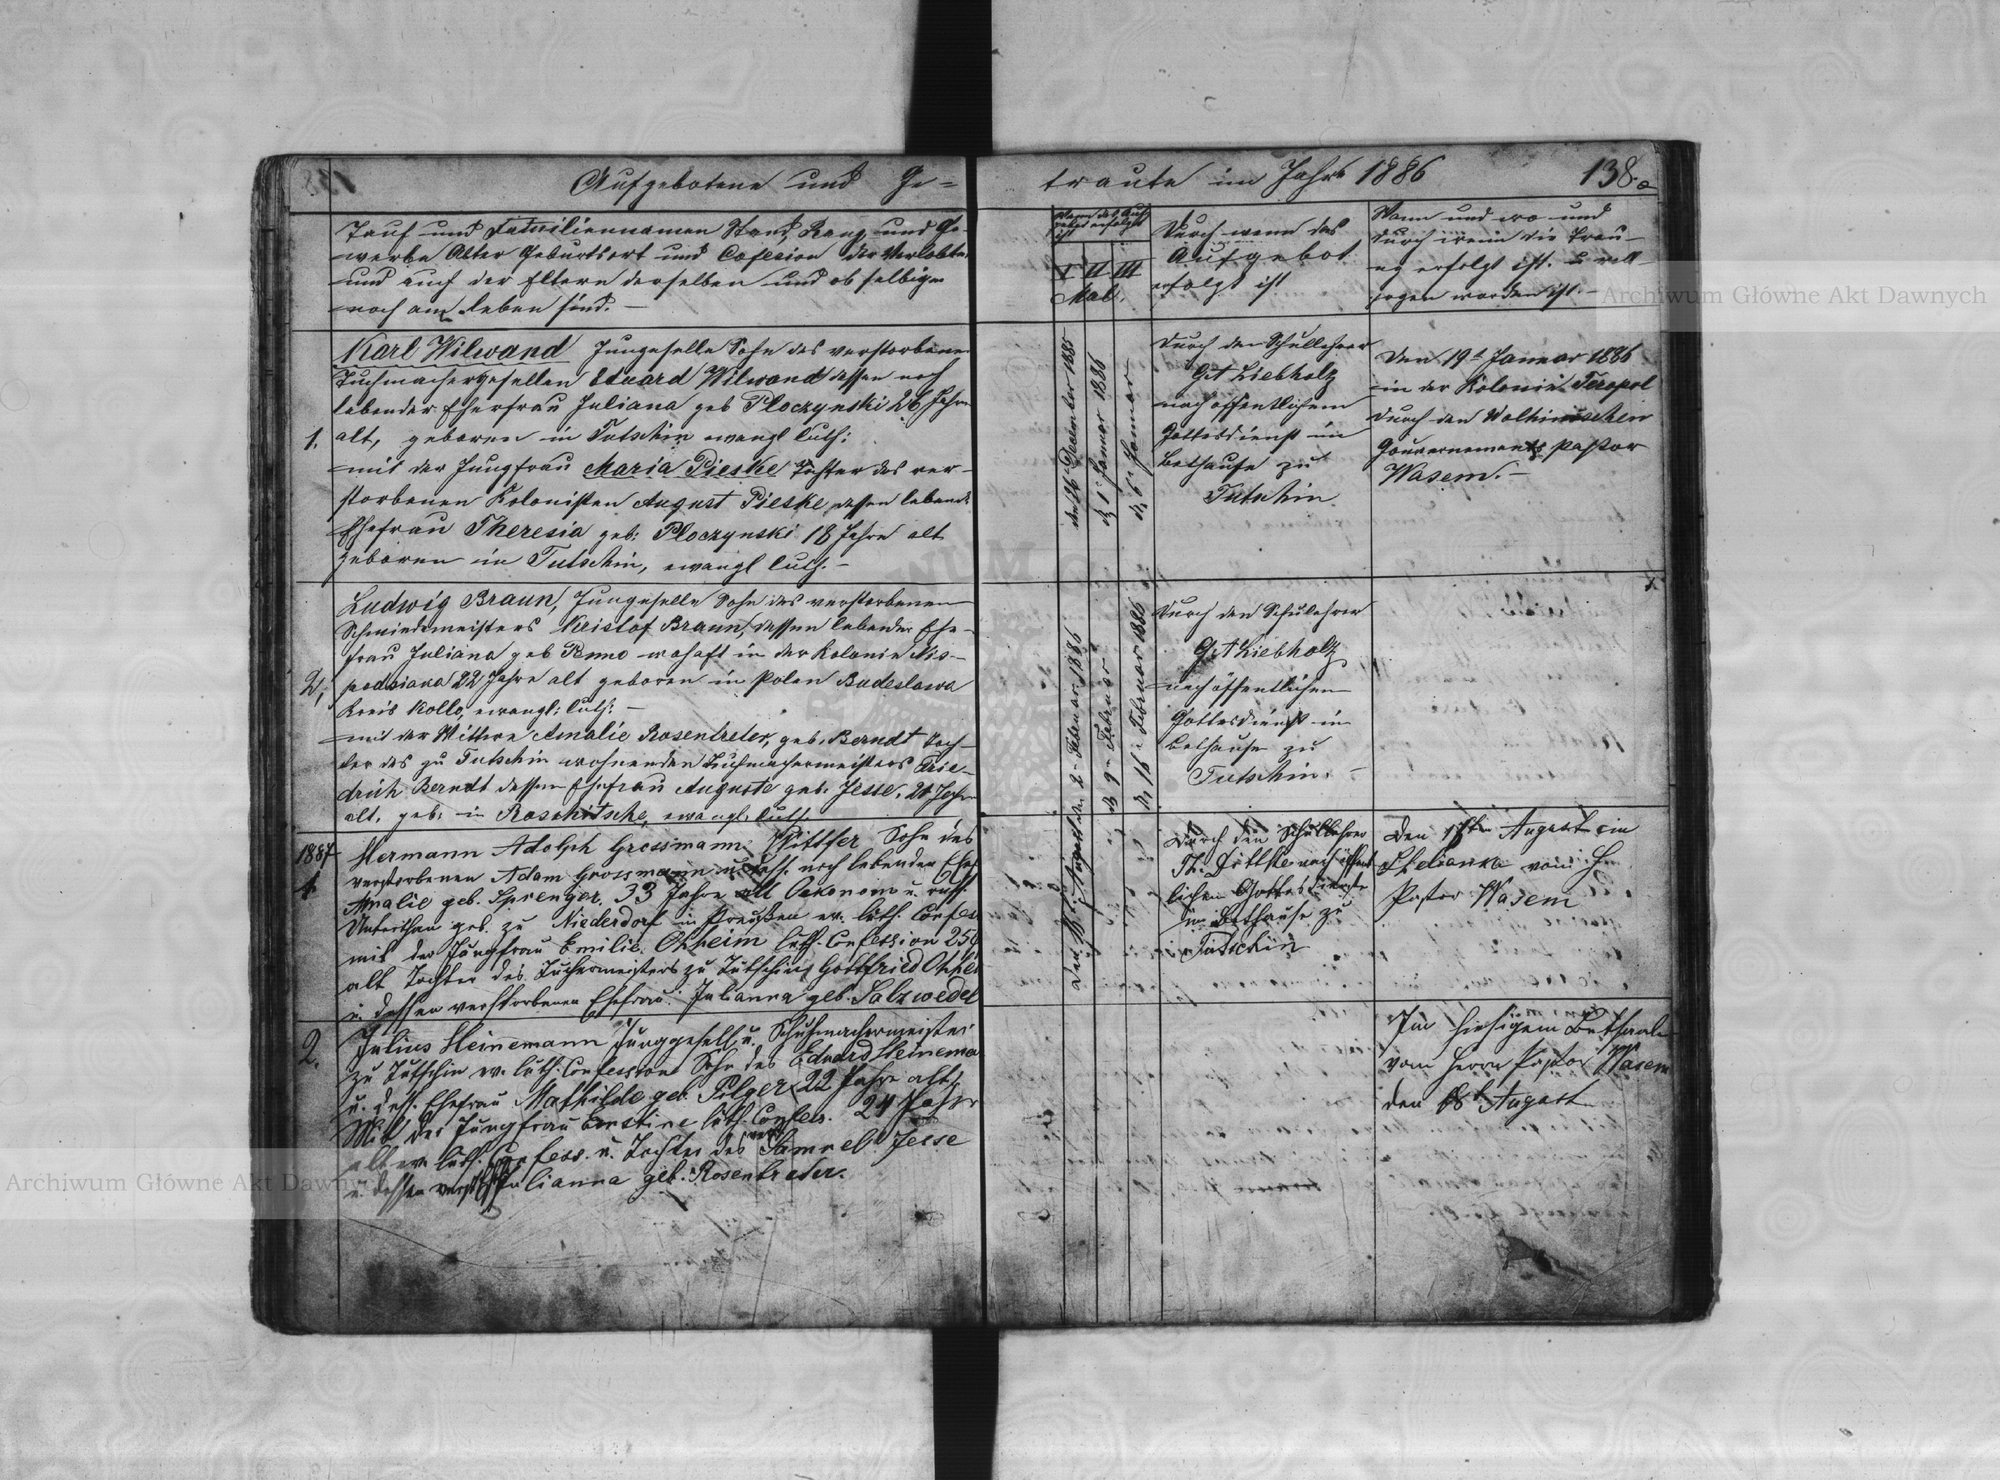 Aufgebotene und Ge=
traute im Jahre 1886 138.
Tauf und Familiennamen Stand, Rang und Ge-
werbe Alter Geburtsort und Cofesion der Verlobten
und auch der Eltern derselben und ob selbige
noch am Leben sind. —
Wann das Auf-
gebot erfolgt
ist
I II III
Mal.
Durch wenn das
Aufgebot
erfolgt ist
Wann und wo und
durch wenn die Trau-
ng erfolgt ist. u voll-
zogen worden ist. —
1.
Karl Wilwand Jungeselle Sohn des verstorbenen
Tuchmachergesellen Eduard Wilwand dessen noch
lebender Eherfrau Juliana geb Ploczynski 26 Jahre
alt, geboren in Tutschin ewangl luth:
mit der Jungfrau Maria Pieske Tochter des ver-
storbenen Kolonisten August Pieske, dessen lebende
Ehefrau Theresia geb: Ploczynski 18 Jahre alt
geboren in Tutschin, ewangl luth. —
den 26 December 1885
d. 1 Januar 1886
d. 6 Januar
Durch den Schullehrer
G A Liebholz
nach öffentlichem
Gottesdienst im
Bethause zu
Tutschin
Den 19 Januar 1886
in der Kolonie Teropol
durch den Wolhinischen
Gouvernements Pastor
Wasem. —
2,
Ludwig Braun, Jungeselle Sohn des verstorbenen
Schmiedemeisters Kristof Braun, dessen lebender Ehe-
frau Juliana geb Penno wohaft in der Kolonie
22 Jahre alt geboren in Polen Budeslawa
Kreis Kollo, ewangl: luth: —
mit der Wittwe Amalie Rosentreter, geb. Berndt Toch-
ter des zu Tutschin wohnenden Tuchmachermeisters Frie-
drich Berndt dessen Ehefrau Auguste geb. Jesse, 21 Jahre
alt, geb. in Roschitsche, ewangl. luth.
den 2 Februar 1886
d. 9 Februar
d. 16 Februar 1886
Durch den Schulehrer
G A Liebholz
nach öffentlichen
Gottesdienst im
Bethause zu
Tutschin. —
1887
1.
Hermann Adolph Grossmann Wittfer Sohn des
verstorbenen Adam Grossmann u. dess. noch lebenden Ehef
Amalie geb. Sprenger. 33 Jahre alt Oekonom u. russ.
Unterthan geb. zu Niederdorf in Preußen ev. luth. Confes
mit der Jungfrau Emilie Okheim luth. Confession 25
alt Tochter des Tuchermeisters zu Tutschin Gottfried Okhe
u. dessen verstorbenen Ehefrau. Julianna geb. Salzwedel
Durch den Schullehrer
nach öffent
lichen Gottesdienste
im Bethause zu
Tutschin
Den 17ten August in
vom H.
Pastor Wasem
2.
Julius Heinemann Junggesell, u. Schuhmachermeister
zu Tutschin ev. luth. Confession Sohn des Eduard Heinema
u. dess. Ehefrau Mathilde geb. Pelger 22 Jahre alt,
Mit der Jungfrau Ernstine luth. Confess. 24 Jahre
alt ev. luth. Confess. u. Tochter des Samuel Jesse
u. dessen verst. Julianna geb. Rosentreter.
Im hiesigem Bethaale
vom Herrn Pastor Wasem
den 18 August
Archiwum Główne Akt Dawnych
Archiwum Główne Akt Dawnych